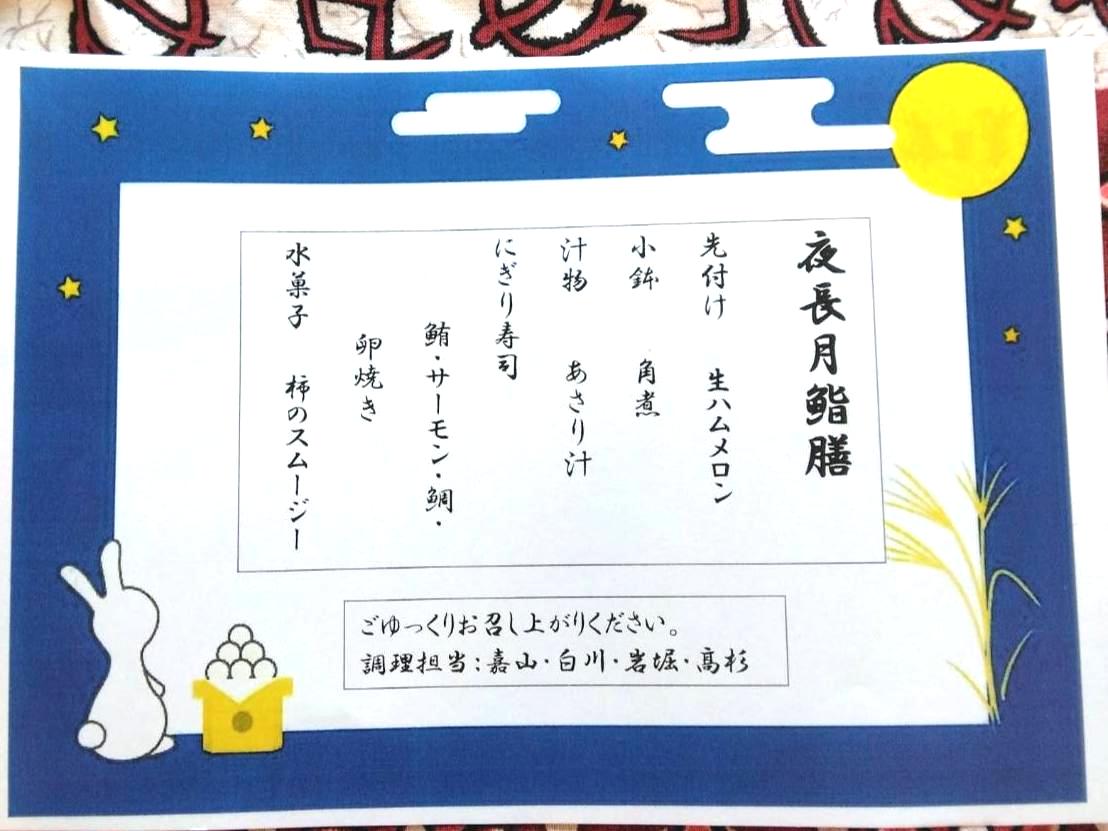 夜長月鮨膳
先付け　生ハムメロン
小鉢　角煮
汁物　あさり汁
にぎり寿司
鮪・サーモン・鯛・
卵焼き
水菓子　柿のスムージー
ごゆっくりお召し上がりください。
調理担当：嘉山・白川・岩堀・髙杉